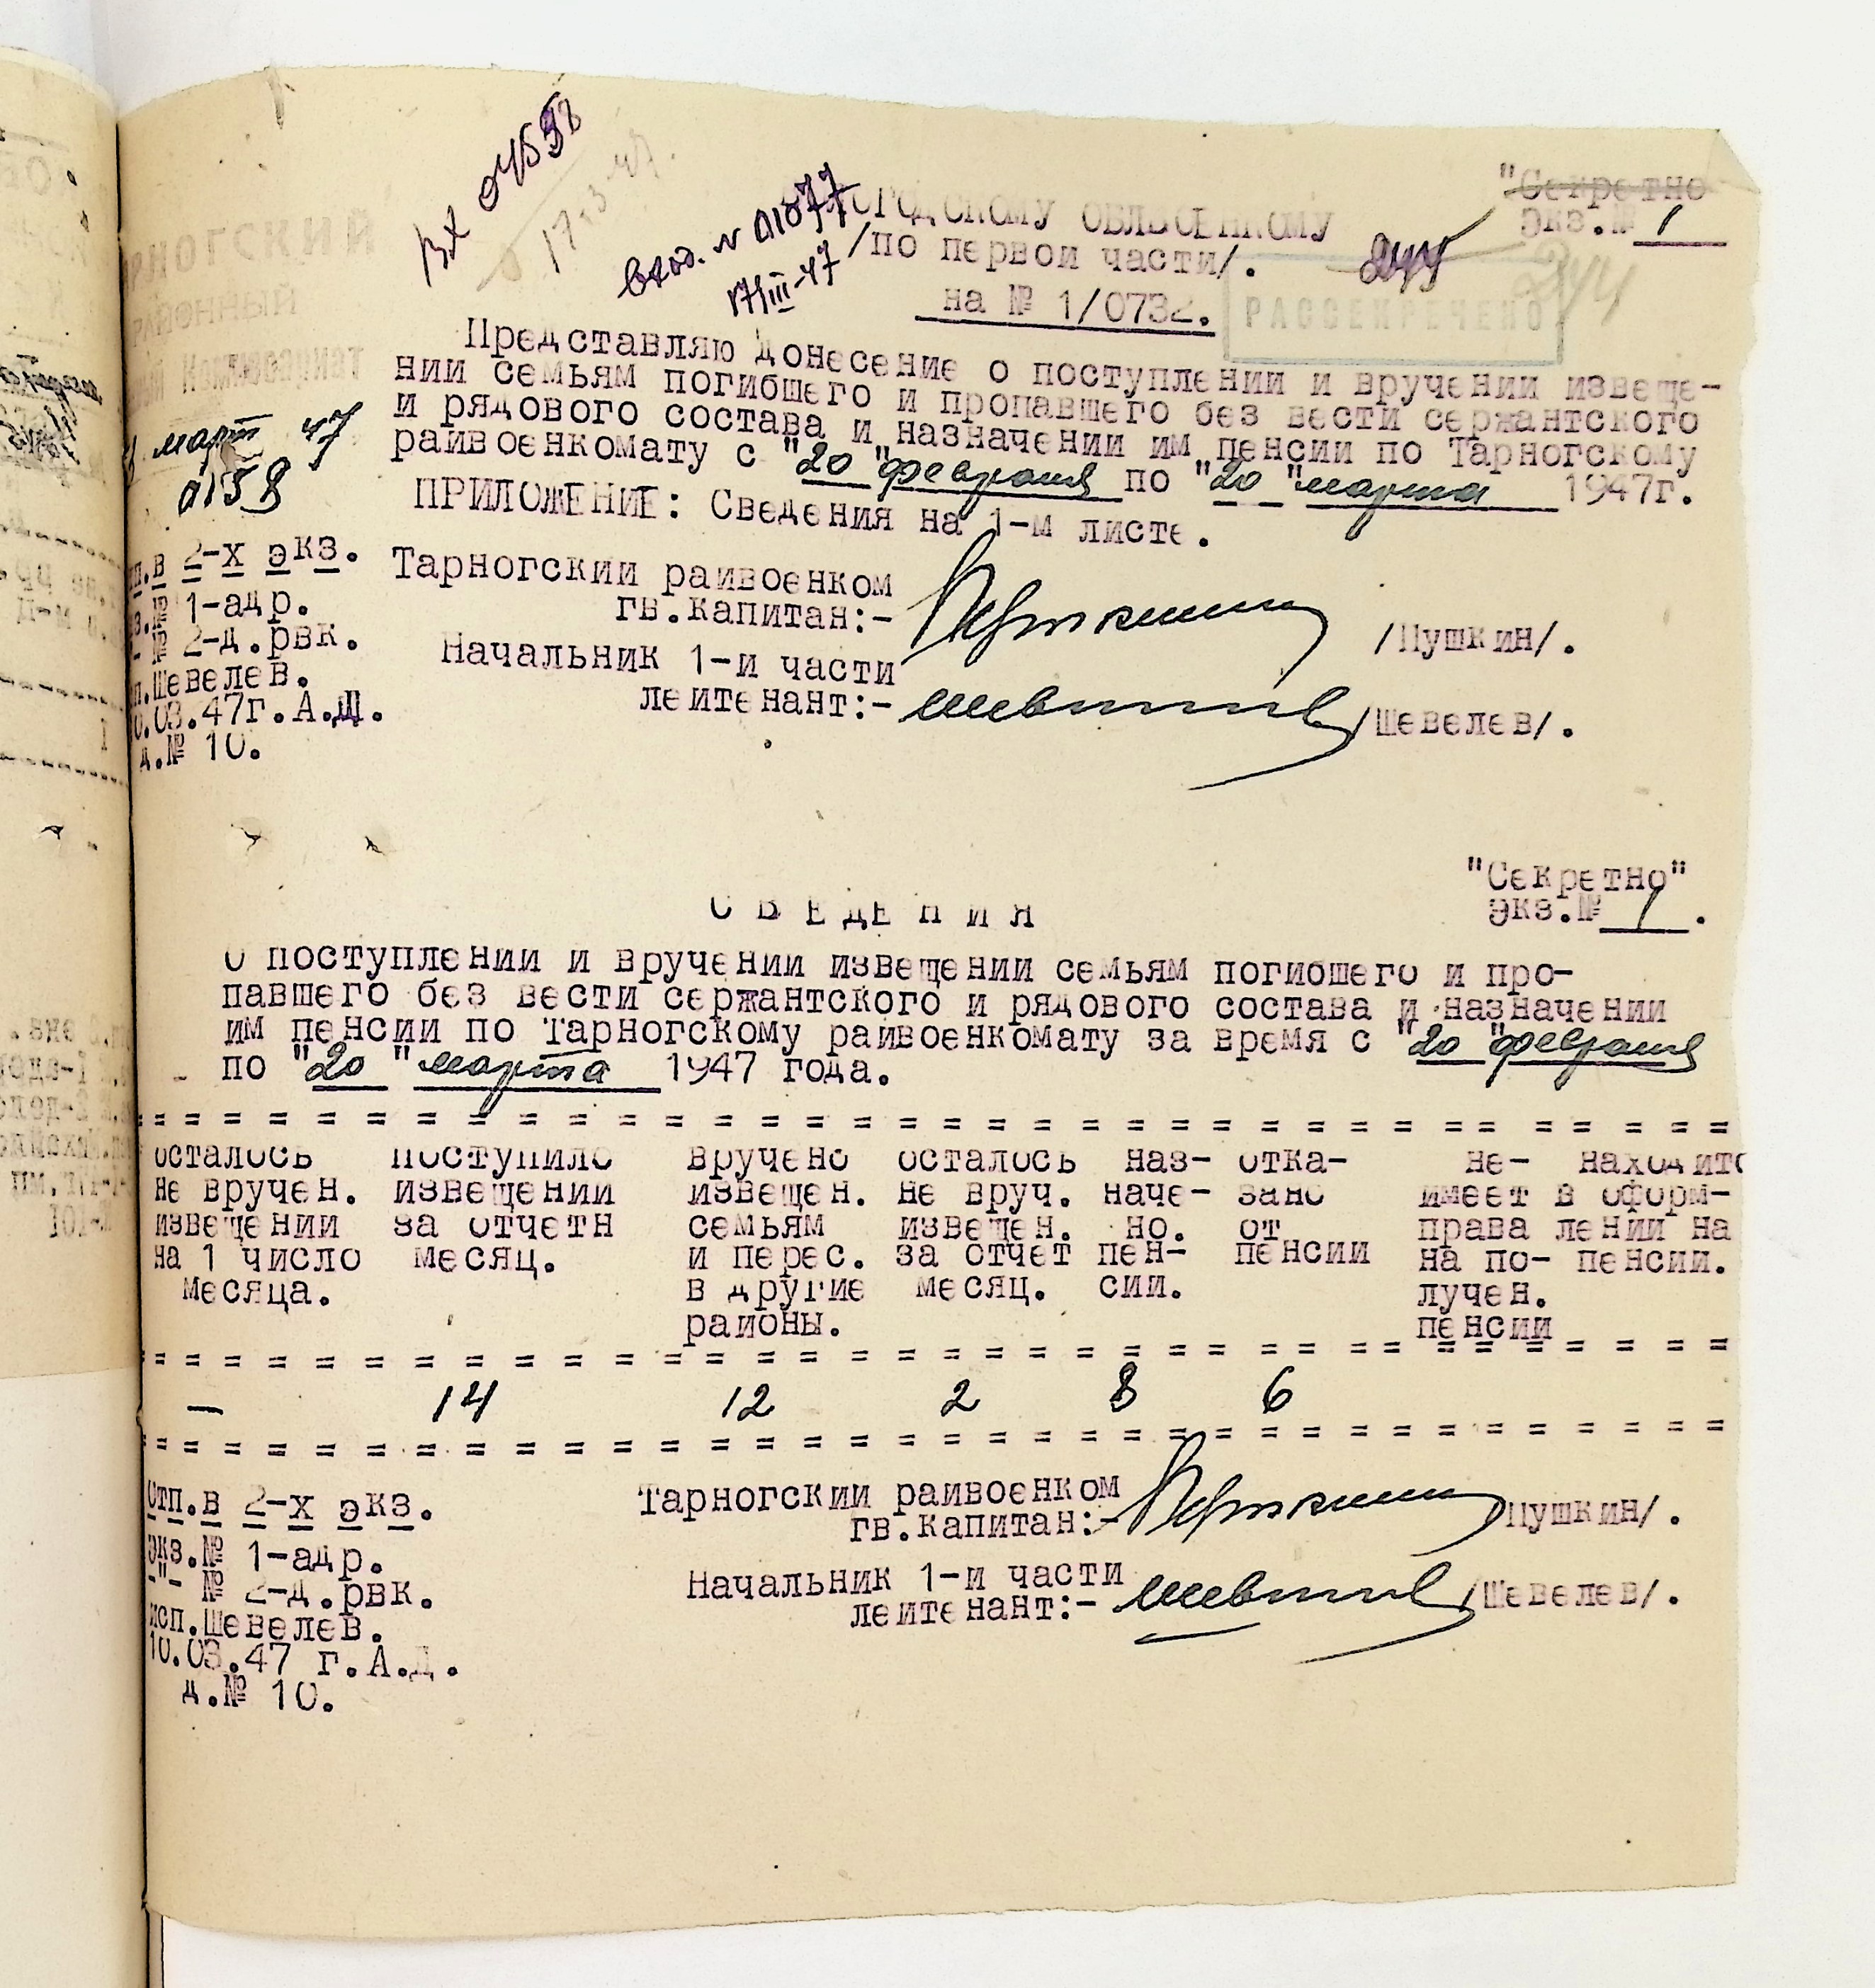 "Секретно
экз.№ 1
вх 04598
17.3.47.
вход. № 01077
17/III-47
ВОЛОГОДСКОМУ ОБЛВОЕНКОМУ
/по первой части/.
на № 1/0732.
244
РАССЕКРЕЧЕНО
РАЙОННЫЙ
март 47
0158
Представляю донесение о поступлении и вручении извеще-
нии семьям погибшего и пропавшего без вести сержантского
и рядового состава и назначении им пенсии по Тарногскому
райвоенкомату с "20 "февраля по "20 "марта 1947г.
ПРИЛОЖЕНИЕ: Сведения на 1-м листе.
Тарногский райвоенком
гв.капитан:- /Пушкин/.
Начальник 1-й части
лейтенант:- /Шевелев/.
в 2-х экз.
№ 1-адр.
- № 2-д.рвк.
Шевелев.
03.47г.А.Д.
д.№ 10.
"Секретно"
экз.№ 1 .
С В Е Д Е Н И Я
О поступлении и вручении извещении семьям погибшего и про-
павшего без вести сержантского и рядового состава и назначении
им пенсии по Тарногскому райвоенкомату за время с "20 "февраля
по "20 "марта 1947 года.
осталось поступило вручено осталось наз- отка- не- находитс
не вручен. извещении извещен. не вруч. наче- зано имеет в оформ-
извещении за отчетн семьям извещен. но. от права лении на
на 1 число месяц. и перес. за отчет пен- пенсии на по- пенсии.
месяца. в другие месяц. сии. лучен.
районы. пенсии
— 14 12 2 8 6
Отп.в 2-х экз.
экз.№ 1-адр.
-"- № 2-д.рвк.
исп.Шевелев.
10.03.47 г.А.Д.
д.№ 10.
Тарногский райвоенком
гв.капитан:- Пушкин/.
Начальник 1-й части
лейтенант:- /Шевелев/.